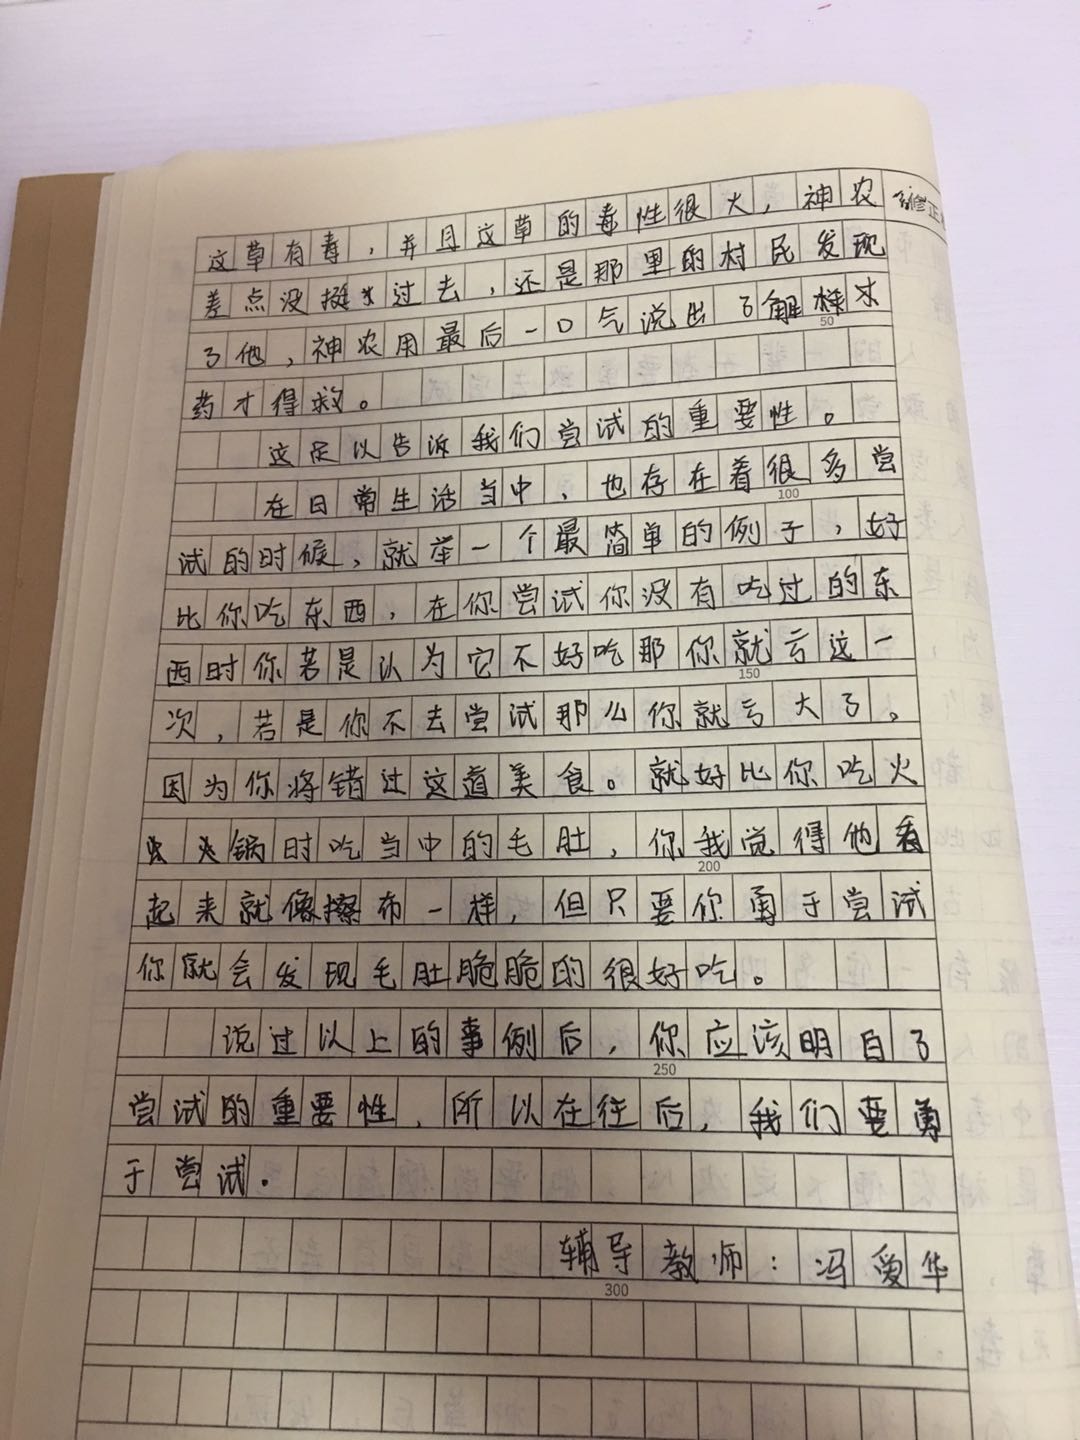 这草有毒，并且这草的毒性很大，神农
差点没挺过去，还是那里的村民发现
了他，神农用最后一口气说出了解
50
药才得救。
这足以告诉我们尝试的重要性。
在日常生活当中，也存在着很多尝
100
试的时候，就举一个最简单的例子，好
比你吃东西，在你尝试你没有吃过的东
西时你若是认为它不好吃那你就亏这一
150
次，若是你不去尝试那么你就亏大了。
因为你将错过这道美食。就好比你吃火
锅时吃当中的毛肚，你我觉得他看
200
起来就像擦布一样，但只要你勇于尝试
你就会发现毛肚脆脆的很好吃。
说过以上的事例后，你应该明白了
250
尝试的重要性，所以在往后，我们要勇
于尝试.
辅导教师：冯爱华
300